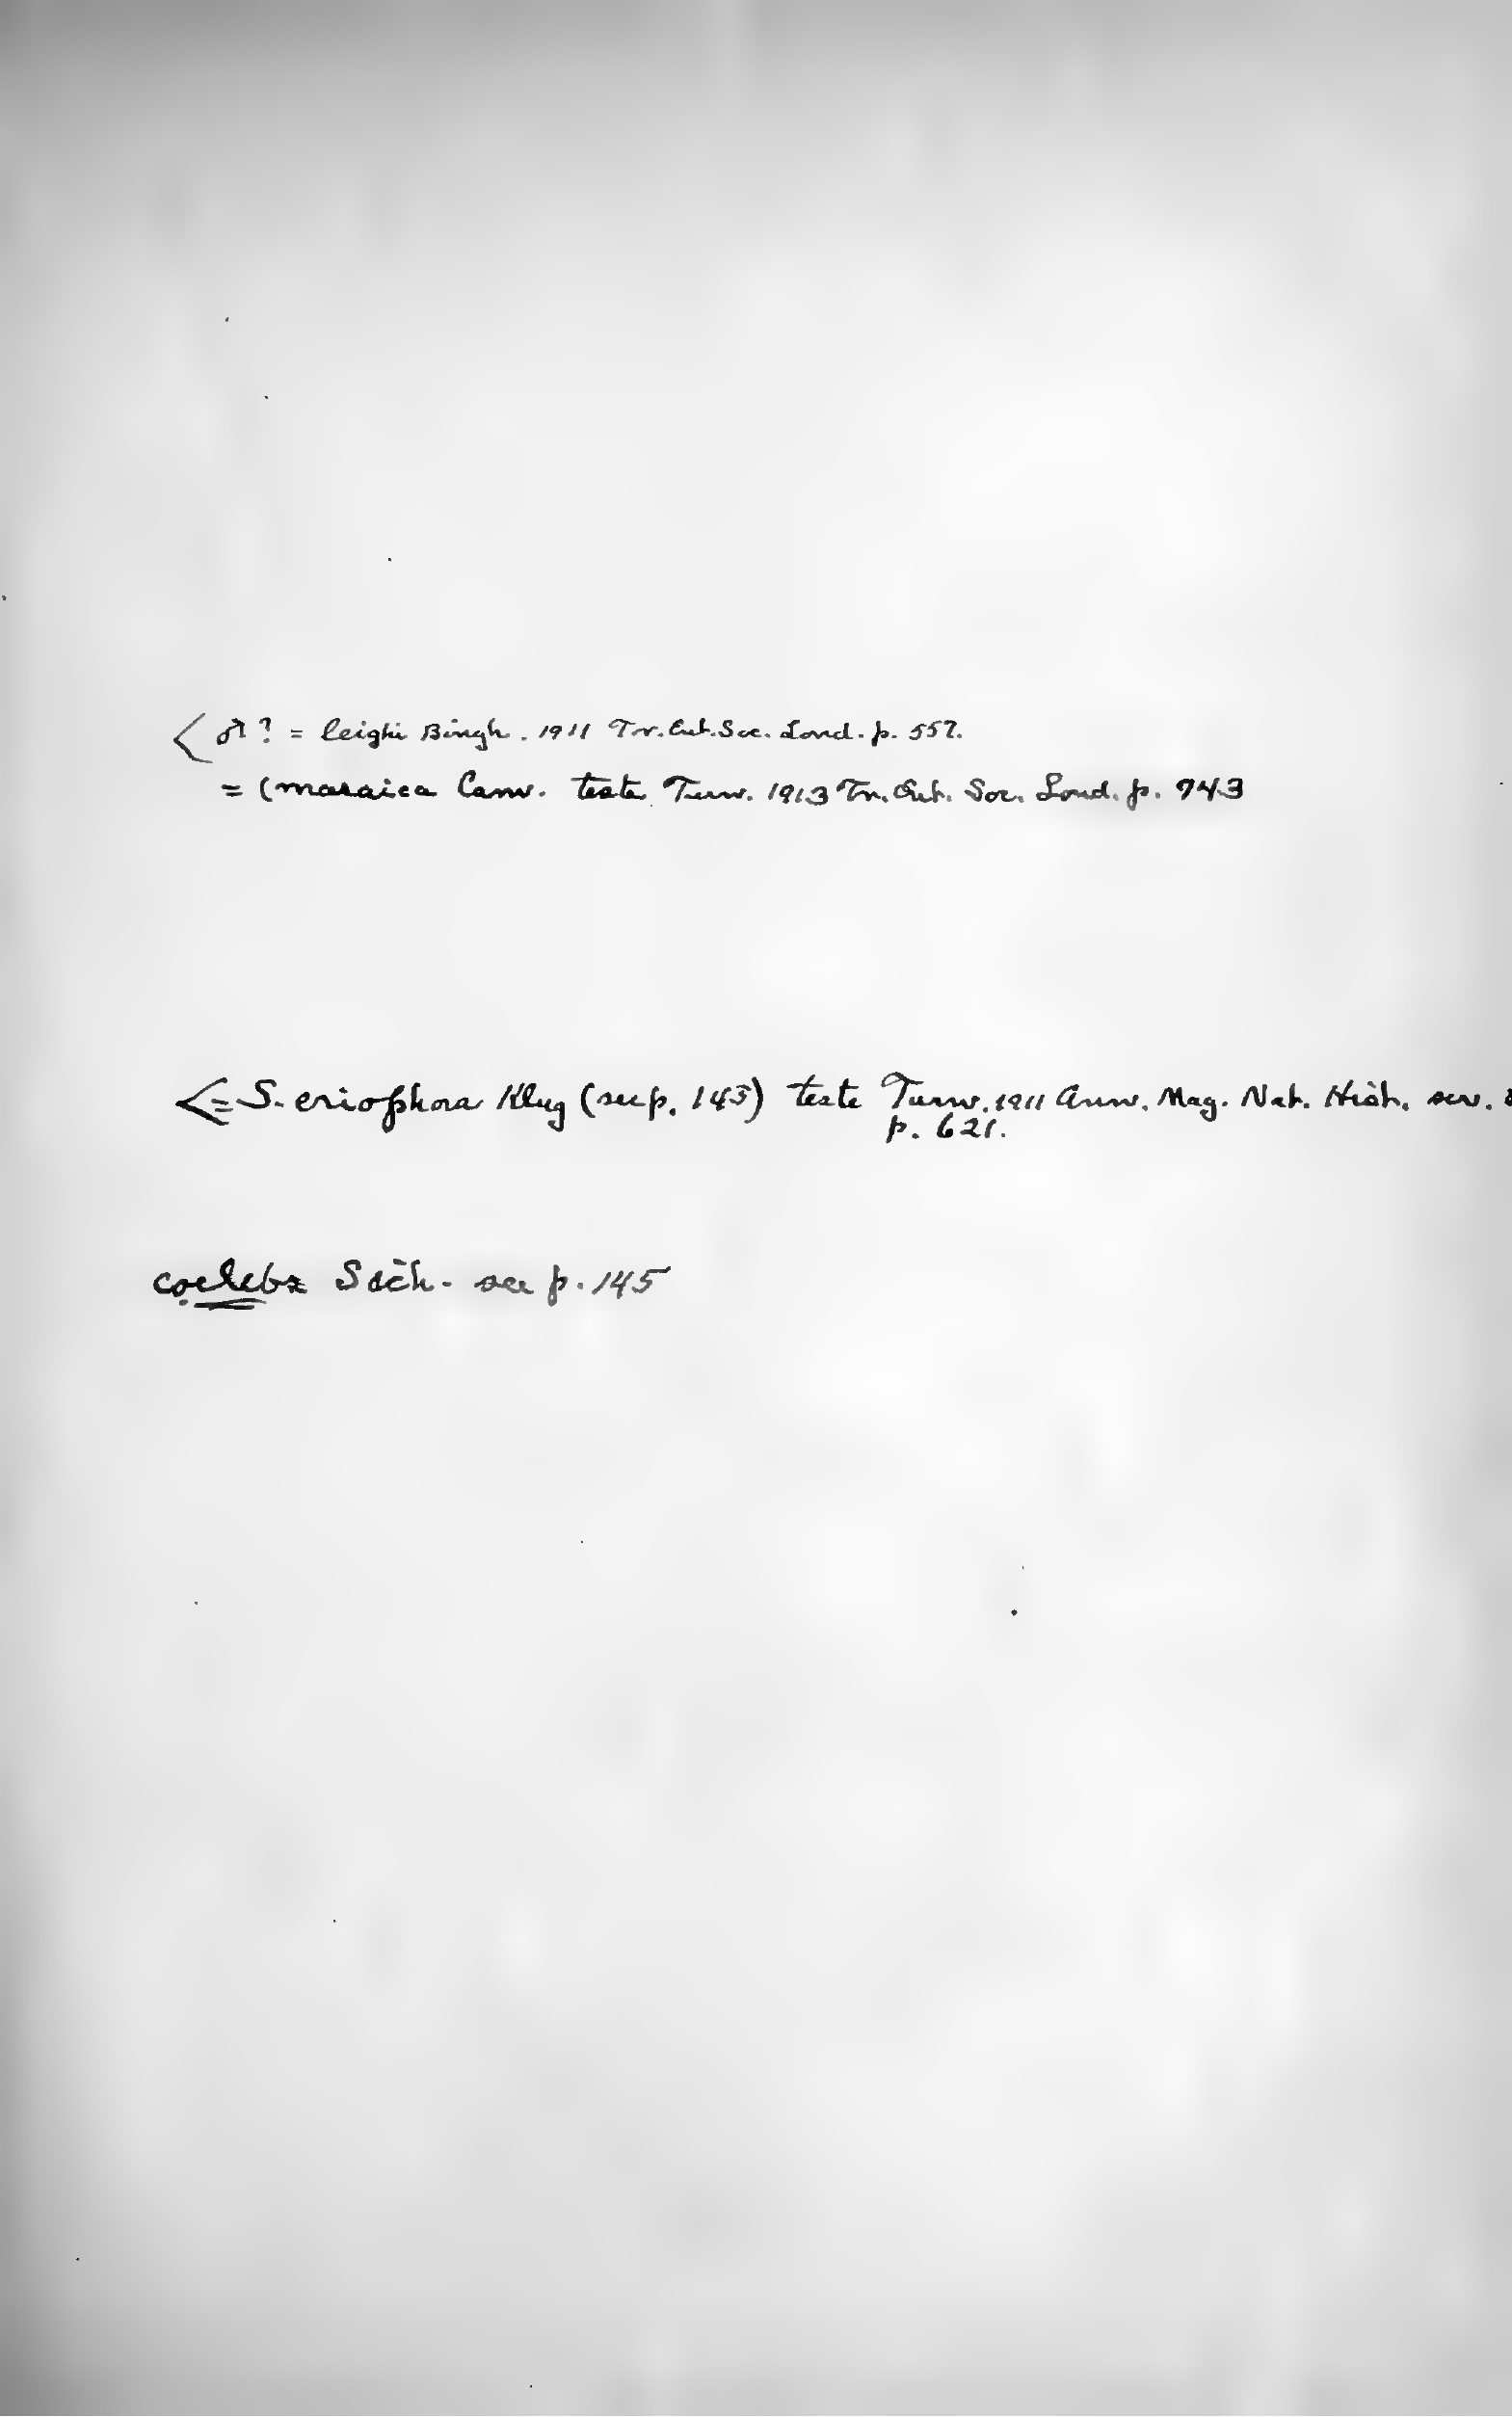 < ♂? = leighi Bingh. 1911 Tr. Ent. Soc. Lond. p. 557.
= (masaica Cam. teste Turn. 1913 Tr. Ent. Soc. Lond. p. 743
<= S. eriophora Klug (see p. 145) teste Turn. 1911 Ann. Mag. Nat. Hist. ser. 8
p. 621.
coelebs Sich. see p. 145